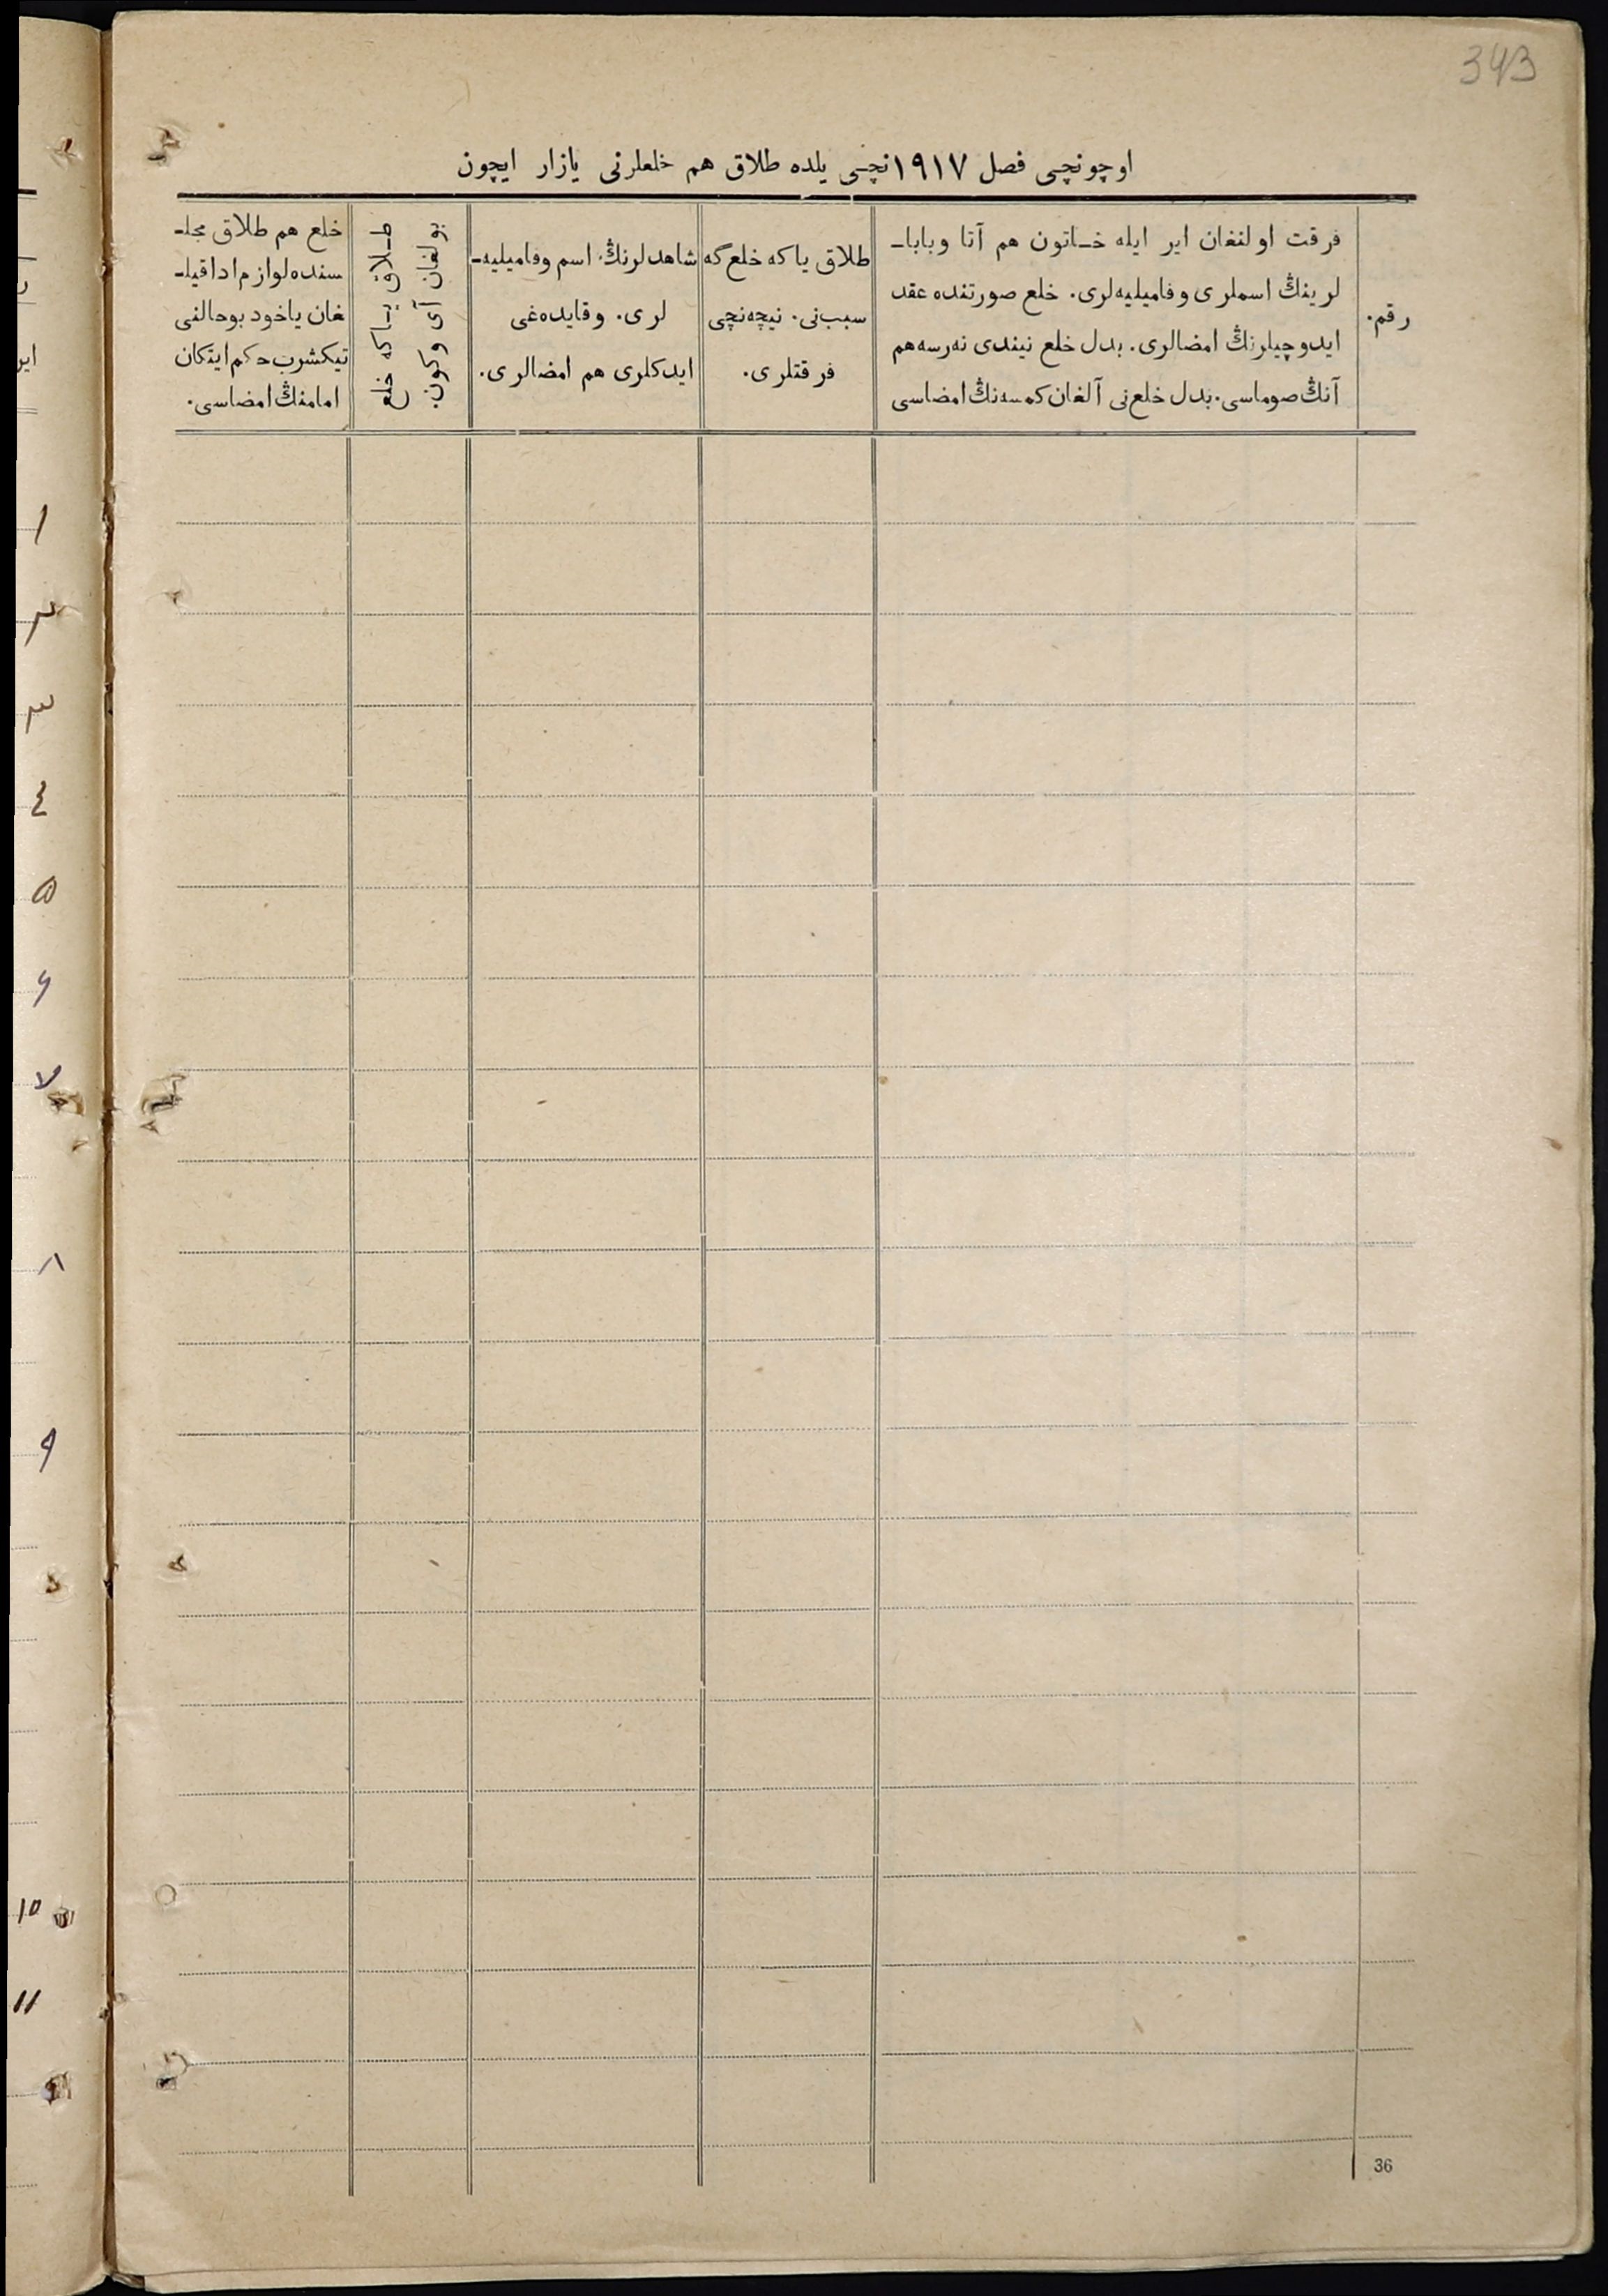 343
اوچونچی فصل ١٩١٧نچی یلده طلاق هم خلعلرنی یازار ایچون
رقم.
فرقت اولنغان ایر ایله خـاتون هم آتا وباباـ
لرینڭ اسملری وفامیلیه‌لری. خلع صورتنده عقد
ایدوچیلرنڭ امضالری. بدل خلع نیندی نه‌رسه‌هم
آنڭ صوماسی. بدل خلع‌نی آلغان كمسه‌نڭ امضاسی
طلاق یاكه خلع‌گه
سبب‌نی. نیچه‌نچی
فرقتلری.
شاهدلرنڭ اسم وفامیلیه‌ـ
لری. وقایده‌غی
ایدكلری هم امضالری.
طـلاق یـاكه خلع
بولغان آی وكون.
خلع هم طلاق مجلـ
سنده‌لوازم‌اداقیلـ
غان یاخود بوحالنی
تیكشرب حكم‌ایتكان
امامنڭ امضاسی.
ایر
١
٢
٣
٤
٥
٦
٧
٨
٩
١٠
١١
36